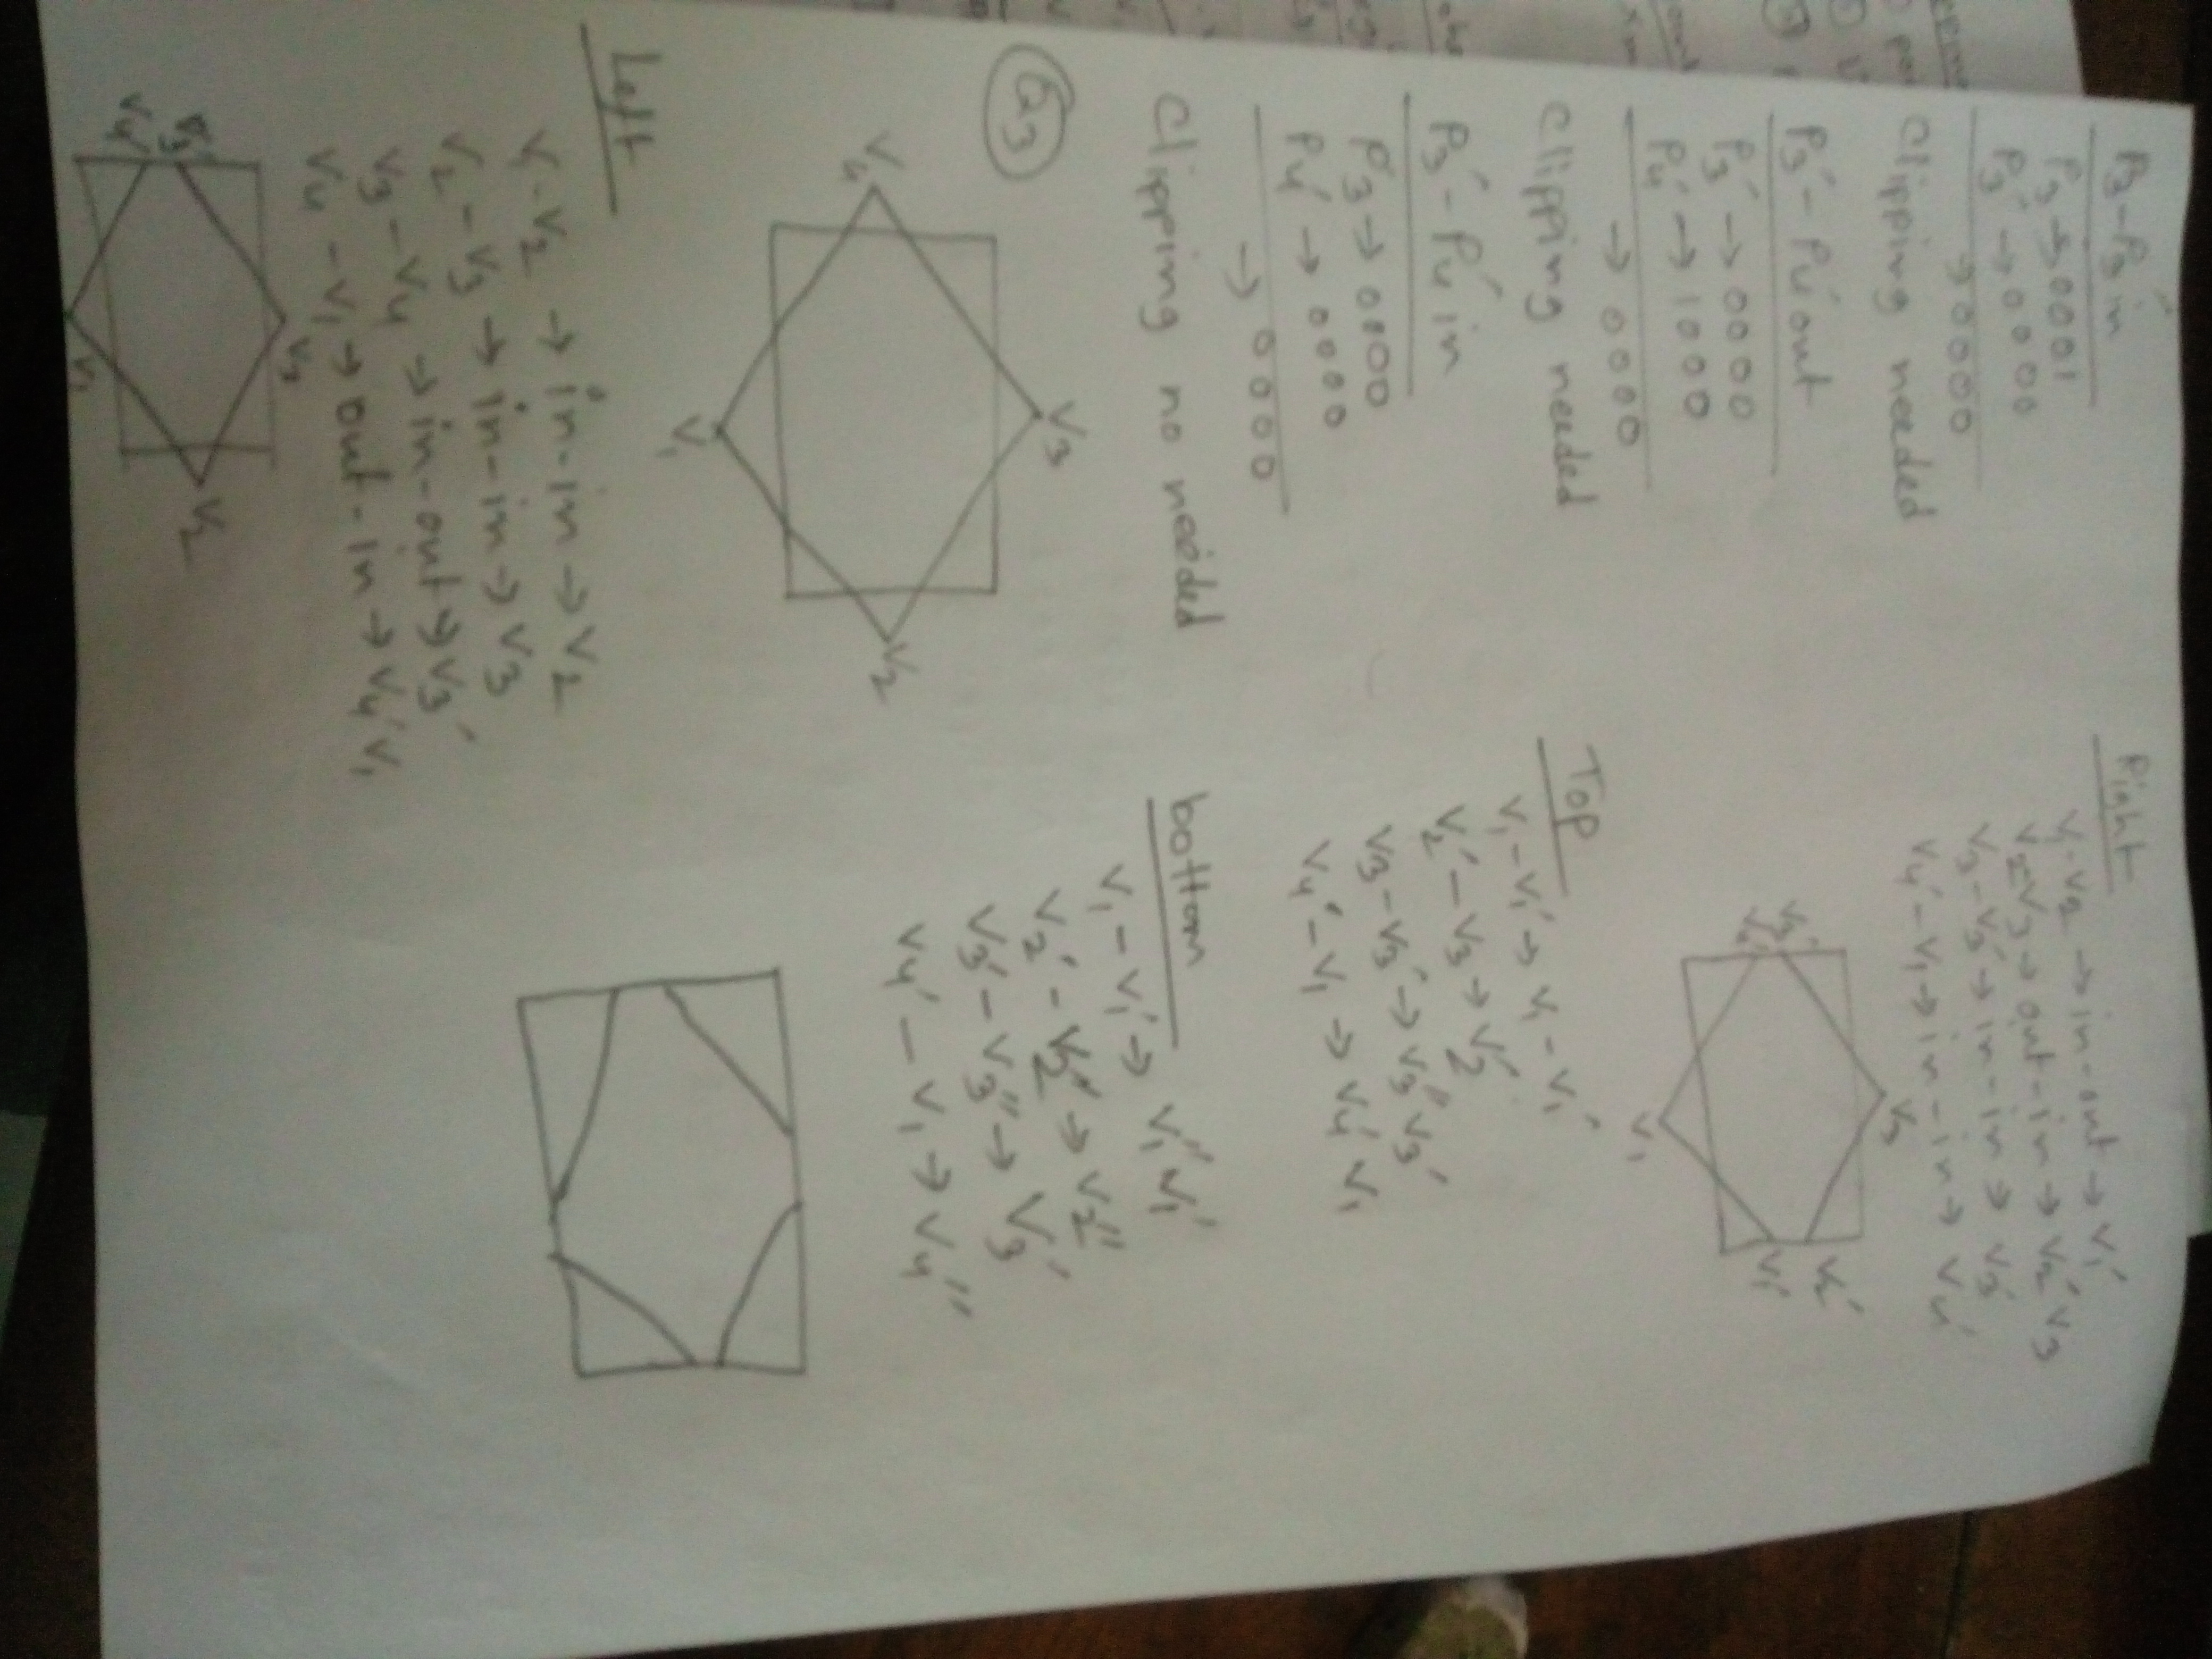 P3 - P3' in
P3 → 0001
P3' → 0000
→ 0000
Clipping needed
P3' - P4' out
P3' → 0000
P4' → 1000
→ 0000
Clipping needed
P3' - P4' in
P3' → 0000
P4' → 0000
→ 0000
Clipping no needed
Q3
V4
V3
V1
V2
Left
V1 - V2 → in - in → V2
V2 - V3 → in - in → V3
V3 - V4 → in - out → V3'
V4 - V1 → out - in → V4' V1
V4'
V3'
V3
V1
V2
Right
V1 - V2 → in - out → V1'
V2 - V3 → out - in → V2' V3
V3 - V3' → in - in → V3'
V4' - V1 → in - in → V4'
V4'
V3'
V3
V1
V1'
V2'
Top
V1 - V1' → V1 - V1'
V2' - V3 → V2'
V3 - V3' → V3'' V3'
V4' - V1 → V4' V1
bottom
V1 - V1' → V1'' V1'
V2' - V2'' → V2''
V3' - V3'' → V3'
V4' - V1 → V4''